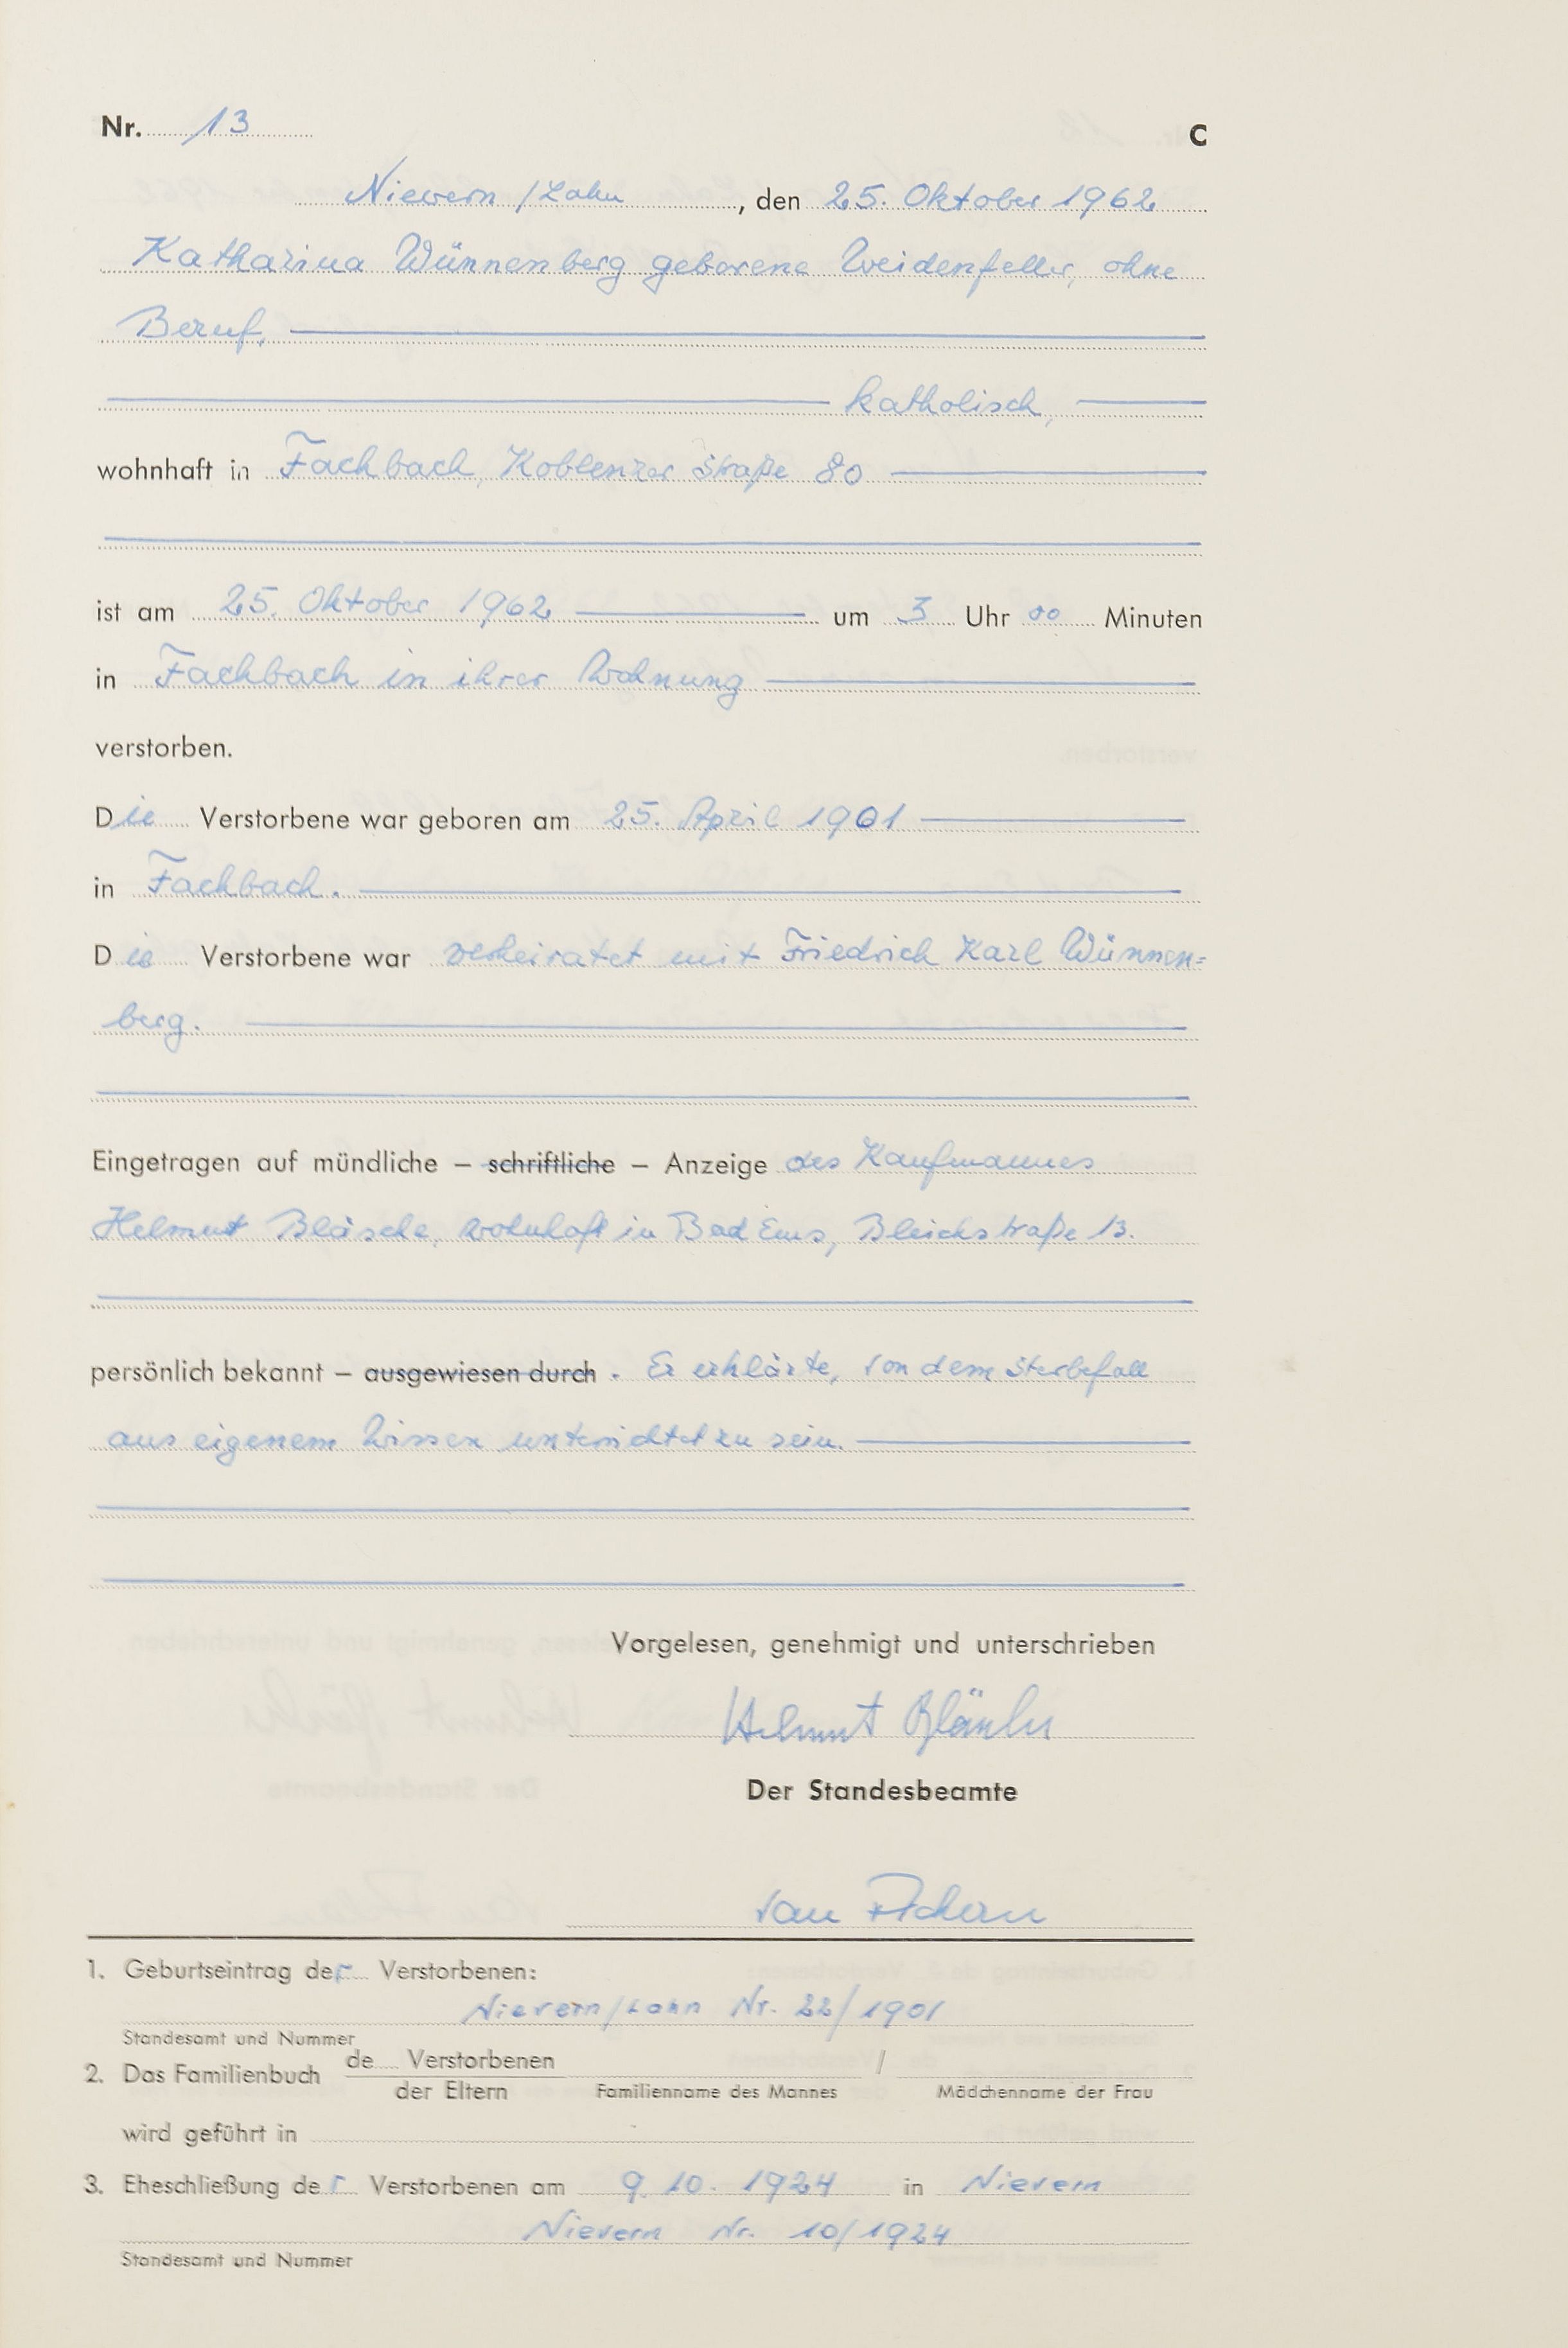 Nr. 13 C
Nievern / Lahn, den 25. Oktober 1962
Katharina Wünnenberg geborene Weidenfeller, ohne
Beruf,
katholisch,
wohnhaft in Fachbach, Koblenzer Straße 80
ist am 25. Oktober 1962 um 3 Uhr 00 Minuten
in Fachbach in ihrer Wohnung
verstorben.
Die Verstorbene war geboren am 25. April 1901
in Fachbach.
Die Verstorbene war verheiratet mit Friedrich Karl Wünnen=
berg.
Eingetragen auf mündliche – schriftliche – Anzeige des Kaufmannes
Helmut Bläsche, wohnhaft in Bad Ems, Bleichstraße 13.
persönlich bekannt – ausgewiesen durch . Er erklärte, von dem Sterbefall
aus eigenem Wissen unterrichtet zu sein.
Vorgelesen, genehmigt und unterschrieben
Helmut
Der Standesbeamte
van
1. Geburtseintrag der Verstorbenen:
Nievern/Lahn Nr. 22/1901
Standesamt und Nummer
2. Das Familienbuch de Verstorbenen /
der Eltern Familienname des Mannes Mädchenname der Frau
wird geführt in
3. Eheschließung der Verstorbenen am 9. 10. 1924 in Nievern
Nievern Nr. 10/1924
Standesamt und Nummer